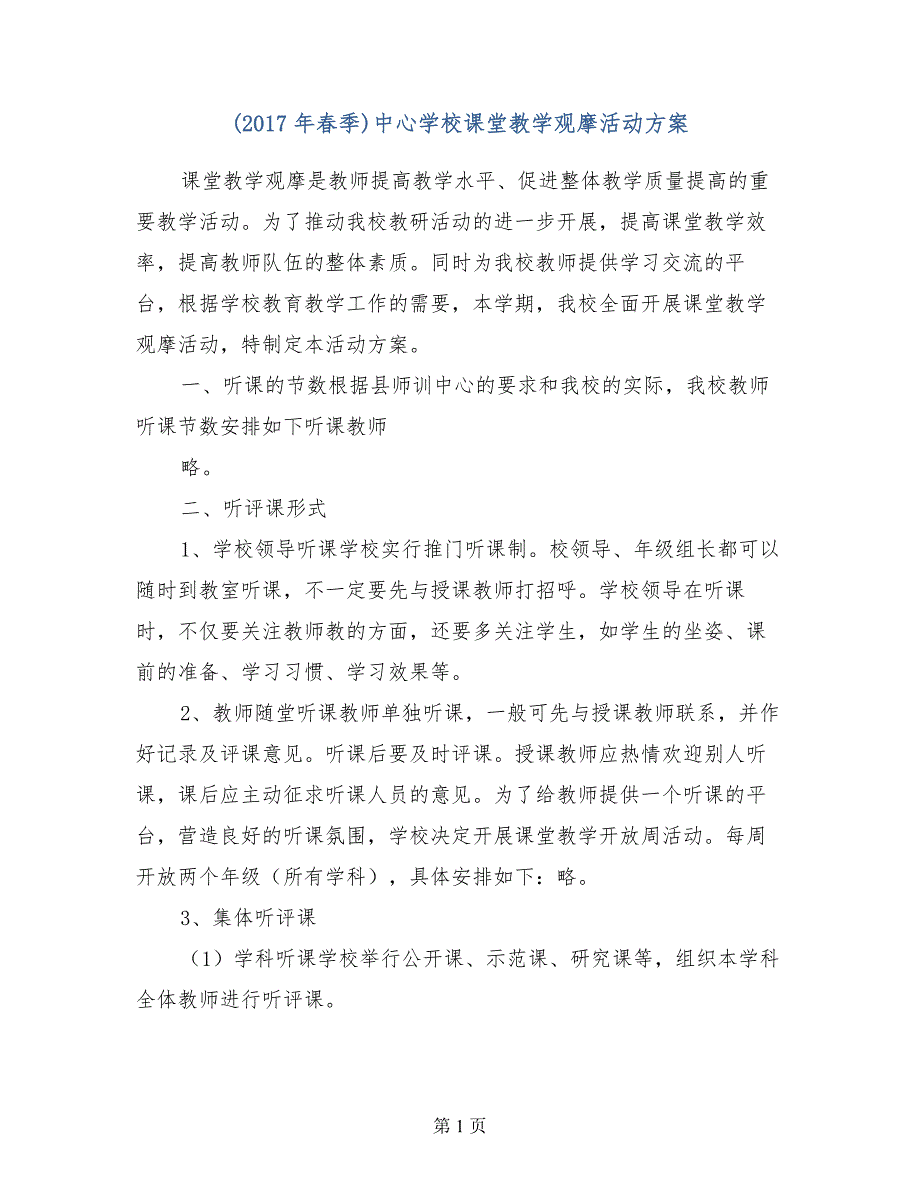 (2017 年春季)中心学校课堂教学观摩活动方案
课堂教学观摩是教师提高教学水平、促进整体教学质量提高的重
要教学活动。为了推动我校教研活动的进一步开展，提高课堂教学效
率，提高教师队伍的整体素质。同时为我校教师提供学习交流的平
台，根据学校教育教学工作的需要，本学期，我校全面开展课堂教学
观摩活动，特制定本活动方案。
一、听课的节数根据县师训中心的要求和我校的实际，我校教师
听课节数安排如下听课教师
略。
二、听评课形式
1、学校领导听课学校实行推门听课制。校领导、年级组长都可以
随时到教室听课，不一定要先与授课教师打招呼。学校领导在听课
时，不仅要关注教师教的方面，还要多关注学生，如学生的坐姿、课
前的准备、学习习惯、学习效果等。
2、教师随堂听课教师单独听课，一般可先与授课教师联系，并作
好记录及评课意见。听课后要及时评课。授课教师应热情欢迎别人听
课，课后应主动征求听课人员的意见。为了给教师提供一个听课的平
台，营造良好的听课氛围，学校决定开展课堂教学开放周活动。每周
开放两个年级（所有学科），具体安排如下：略。
3、集体听评课
（1）学科听课学校举行公开课、示范课、研究课等，组织本学科
全体教师进行听评课。
第 1 页